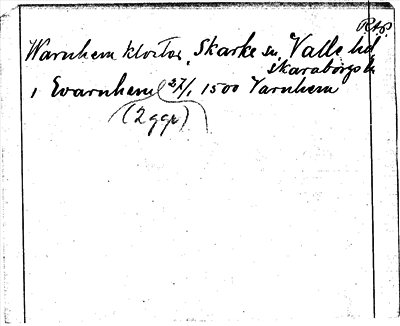 Rtp
Warnhem kloster, Skarke sn, Valle hd
Skaraborgs l.
i Evarnhem 27/1 1500 Varnhem
(2 ggr)